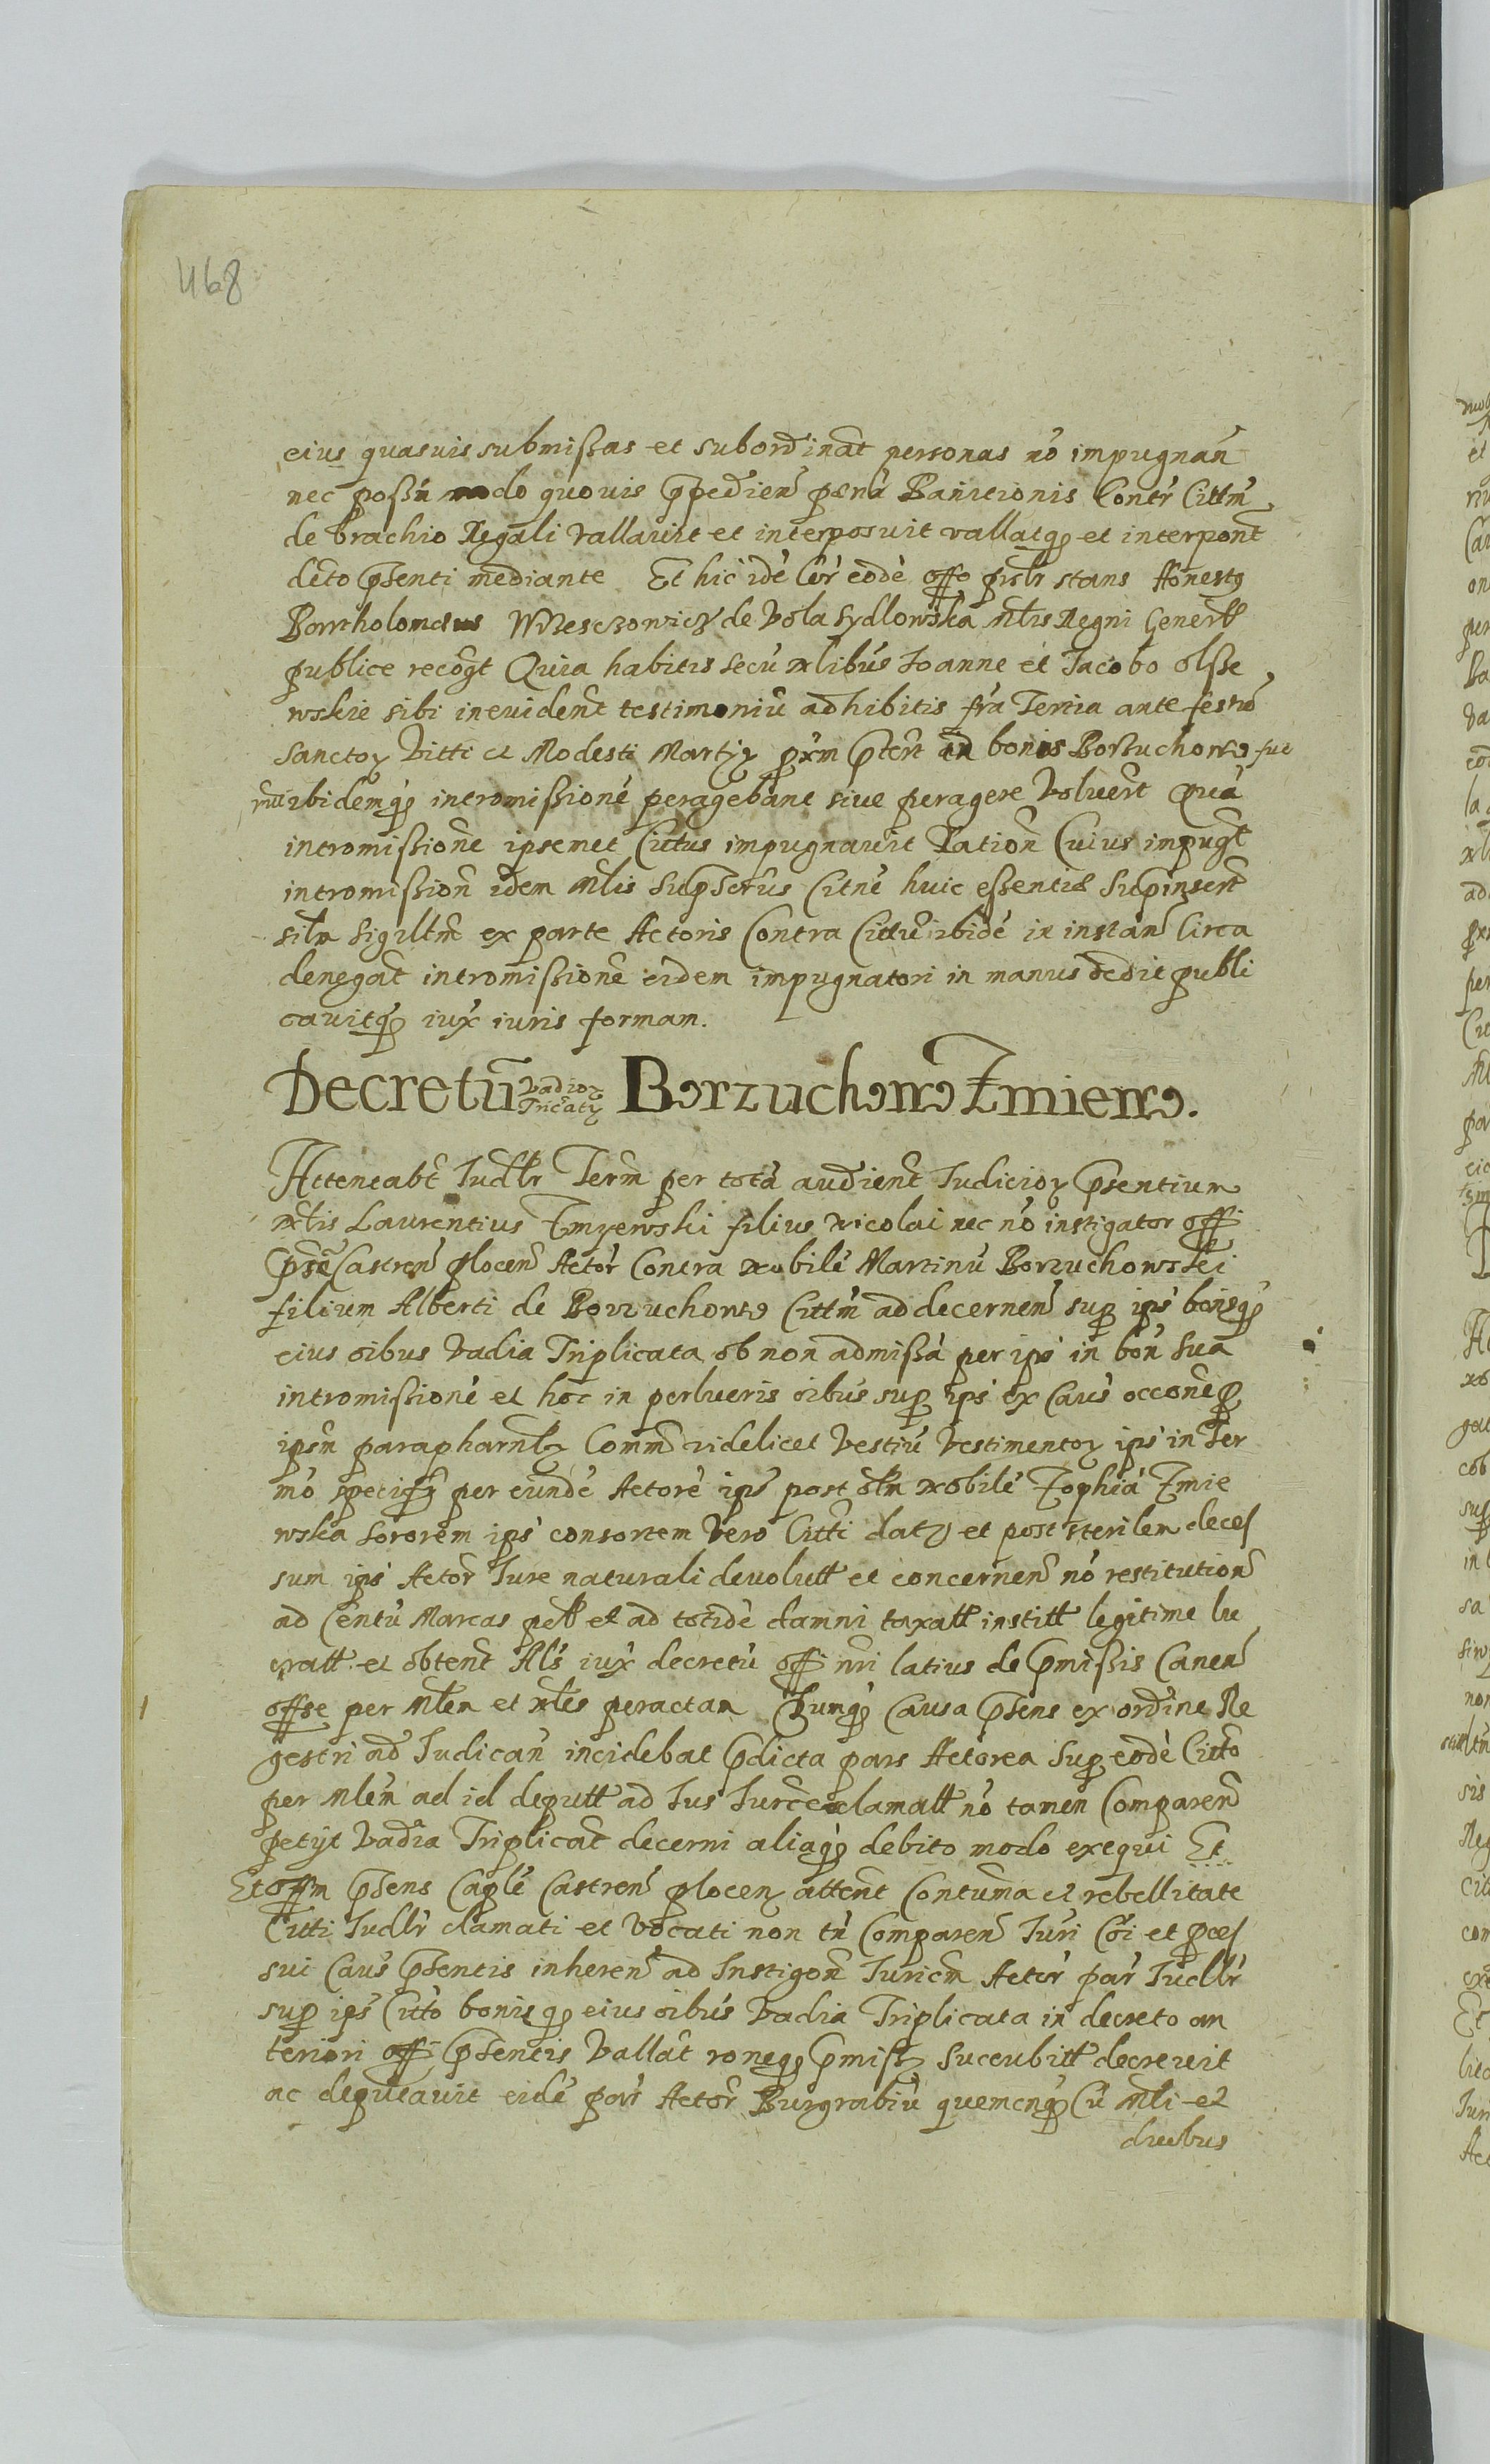 468
eius quasuis submissas et subordinat personas nō impugnan̄
nec possn̄ modo quovis p̄pedien̄ pœna Banitionis Contr Citt̄m
de brachio Regali vallavit et interposuit vallatq; et interpont
dcto p̄senti mediante Et hic idē cor̄ eodē offo p̄slr stans Honestꝯ
Bartholomæus Wrzesczowicz de Vola Sydlowska Mlis Regni Generll
publice recogt Quia habitis secū nlibus Joanne et Jacobo Olsse
wskie sibi in evident testimoniū adhibitis fr̄a Tertia ante festū
Sanctoꝝ Vitti et Modesti Martijꝝ pxm p̄tert in bonis Borzuchowo fue
runt ibidemq; intromissionē peragebant sive peragere Voluert Quā
intromissionē ipsemet Cittus impugnavit Ration̄ Cuius impugt
intromission̄ idem Mlis Sup̄scrus Citnē huic essentiæ Sup̄insert
silr̄ Sigilltm̄ ex parte Actoris Contra Cittū ibidē in instan̄ Circa
denegat intromissionē eidem impugnatori in manus dedit publi
cavitq; iux̄ iuris formam.
Decretū Vadioꝝ Tricatꝝ Borzuchowo Żmiewo.
Attentabt Iudllr Term̄ per totā audient Iudicioꝝ p̄sentium
nlis Laurentius Żmyewski filius Nicolai nec nō instigator offi
p̄sē Castren̄ plocen̄ Actor Contra nobilē Martinū Borzuchowski
filium Alberti de Borzuchowo Citt̄m ad decernen̄ sup ips bonisq;
eius oibus Vadia Triplicata ob non admissā per ips in bon̄ sua
intromissionē et hoc in perlucris oibus sup ips ex Caus occone p
ipsm̄ parapharnlꝝ Comm̄ videlicet Vestiū Vestimentoꝝ ips in Ter
mō specif per eundē Actorē ips post olm̄ nobilē Zophiā Żmie
wska sororem ips consortem Vero Citti datꝝ et post sterilem deces
sum ips Actor Iure naturali devolutt et concernen̄ nō restitution̄
ad Centū Marcas pell et ad totidē damni taxatt institt legitime lu
cratt et obtent Als iux̄ decretū offi nri latius de p̄missis Canen̄
offse per Mlem et nles peractam Cumq; Causa p̄sens ex ordine Re
gestri ad Iudican̄ incidebat p̄dicta pars Actorea Sup eodē Citto
per Mlem̄ ad id deputt ad Ius Iurce clamatt nō tamen Comparen̄
petijt Vadia Triplicat decerni aliaq; debito modo exequi Et
Et offm̄ p̄sens Caple Castren̄ plocenꝝ attent Contuma et rebellitate
Citti Iudllr clamati et vocati non tn̄ Comparen̄ Iuri Coi et proces
sui Caus p̄sentis inheren̄ ad Instigon̄ Iuricm̄ Actor par Iudllr
sup ips Citto bonisq; eius oibus Vadia Triplicata in decreto an
teriori offi p̄sentis Vallat roneq; p̄missꝝ Succubitt decrevit
ac deputavit eidē par Actor Burgrabiū quemcnq; Cū Mli et
duobus